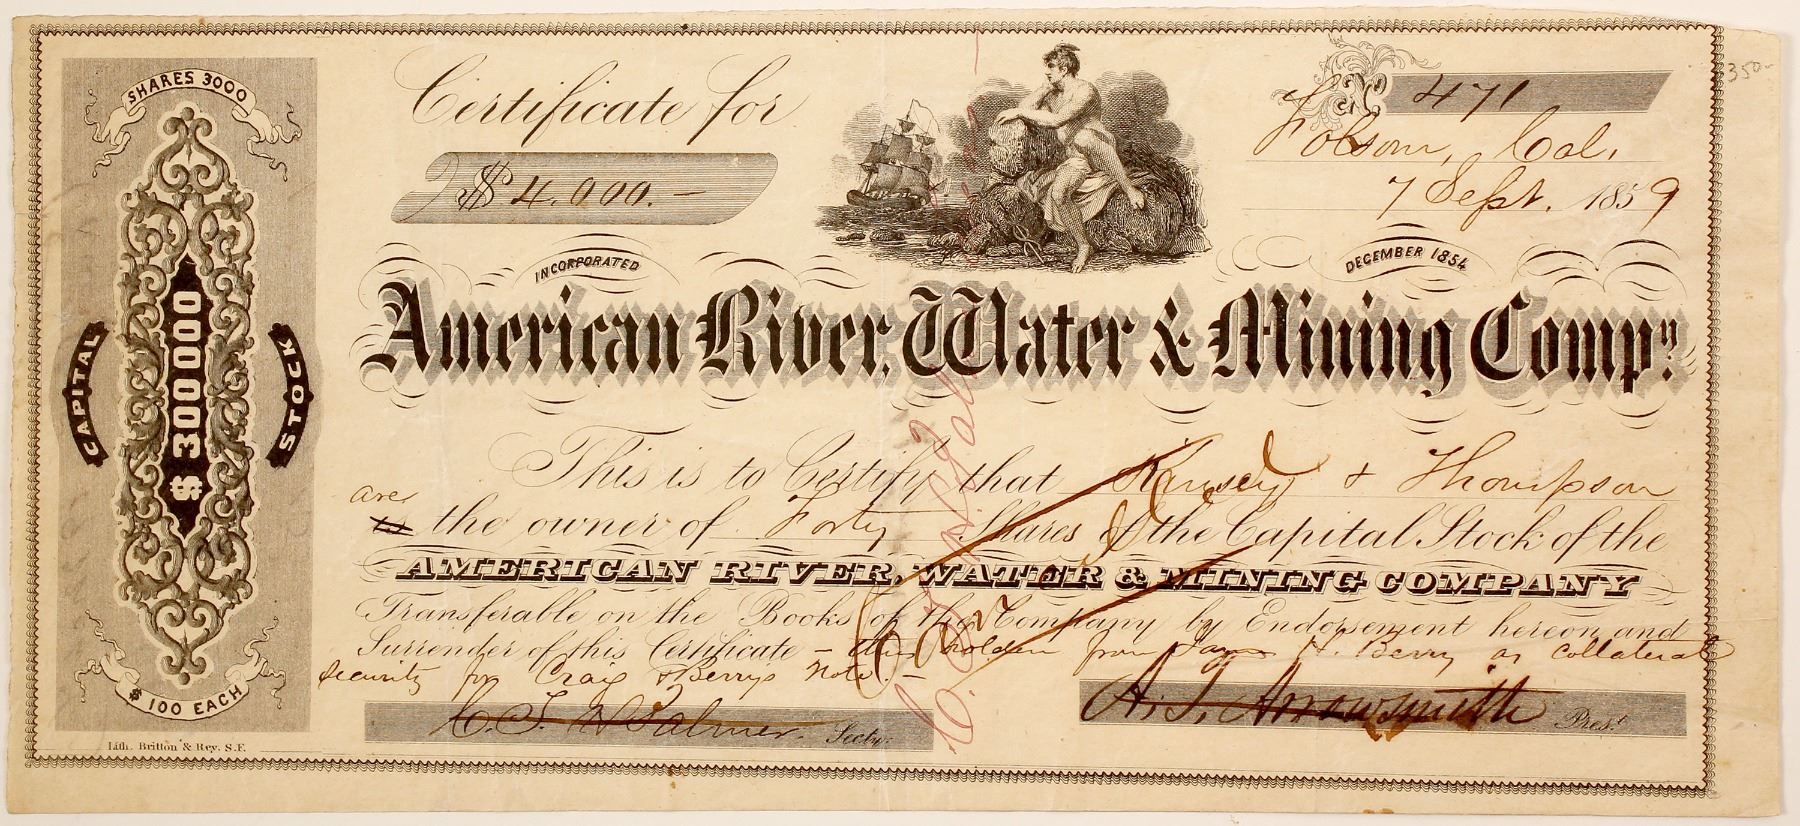 SHARES 3000
CAPITAL
$ 300000
STOCK
$ 100 EACH
Lith. Britton & Rey. S.F.
Certificate for
$ 4.000.—
471
350-
Folsom, Cal.
7 Sept. 1859
INCORPORATED
DECEMBER 1854
American River, Water & Mining Compy.
This is to Certify that & Thompson
are
is the owner of Forty Shares of the Capital Stock of the
AMERICAN RIVER, WATER & MINING COMPANY
Transferable on the Books of the Company by Endorsement hereon and
Surrender of this Certificate — H. Berry as Collateral
Security for Craig & Berrys Note. —
Canceled
C. T. H. Palmer. Secty.
A. T. Arrowsmith Prest.